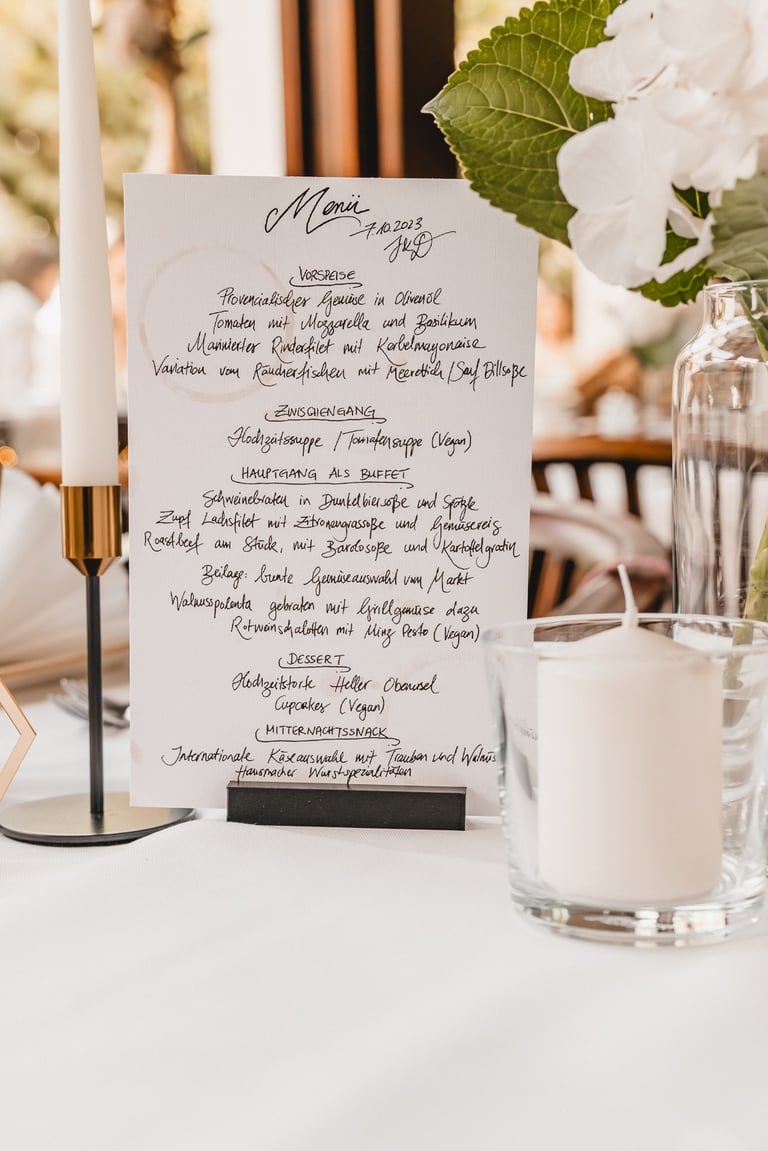 Menü
7.10.2023
J&D
VORSPEISE
Provencialischer Gemüse in Olivenöl
Tomaten mit Mozzarella und Basilikum
Marinierter Rinderfilet mit Kerbelmayonaise
Variation vom Räucherfischen mit Meerettich/Senf Dillsoße
ZWISCHENGANG
Hochzeitssuppe / Tomatensuppe (Vegan)
HAUPTGANG ALS BUFFET
Schweinebraten in Dunkelbiersoße und Spätzle
Zupf Lachsfilet mit Zitronengrassoße und Gemüsereis
Roastbeef am Stück, mit Barolosoße und Kartoffelgratin
Beilage: bunte Gemüseauswahl vom Markt
Walnusspolenta gebraten mit Grillgemüse dazu
Rotweinschalotten mit Minz Pesto (Vegan)
DESSERT
Hochzeitstorte Heller
Cupcakes (Vegan)
MITTERNACHTSSNACK
Internationale Käseauswahl mit Trauben und Walnüs
Hausmacher Wurstspezialitäten